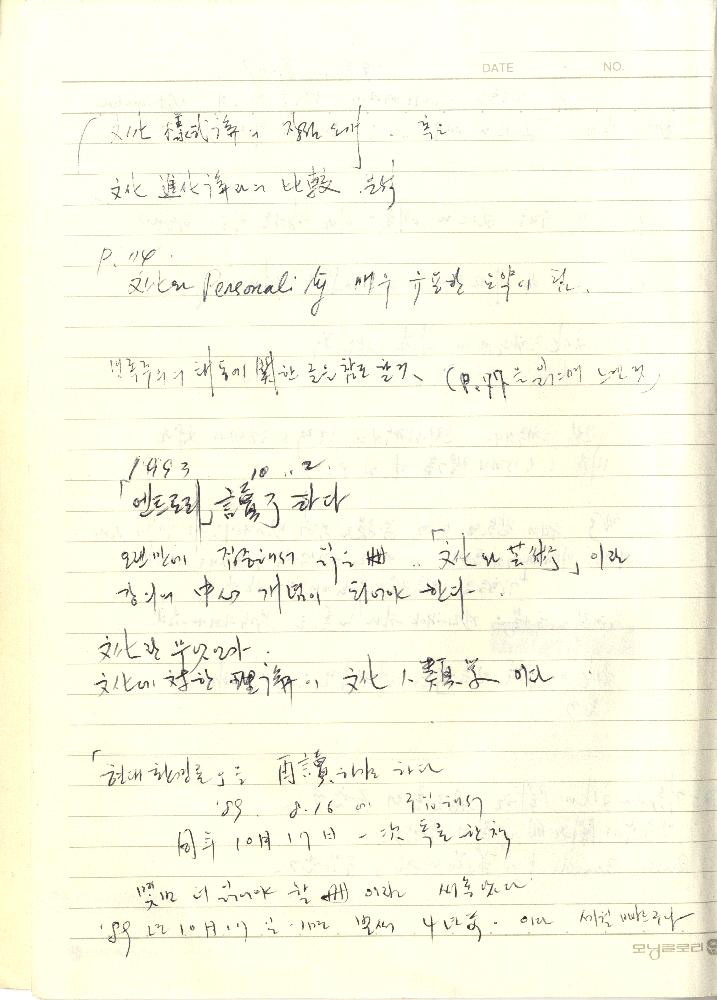 DATE · NO.
文化 樣式論의 장점 소개. 혹은
文化 進化論과의 比較 분석
P. 114.
文化와 Personality 매우 유용한 요약이 됨.
민족주의의 태동에 關한 글을 참고할 것. (P. 77을 읽으며 느낀 것)
1993 10. 2.
「엔트로피」 讀了하다
오랜만에 집중해서 읽은 冊.. 「文化와 芸術」이란
강의의 中心 개념이 되어야 한다.
文化란 무엇인가.
文化에 対한 理論이 文化人類学이다
「현대환경론」을 再讀하기로 하다
'89. 8. 16에 구입해서
同年 10月 17日 一次 독료한 책
몇번 더 읽어야 할 冊이라 써 놓았다
'89년 10月 17일이면 벌써 4년 이라 세월 빠르구나
모닝글로리